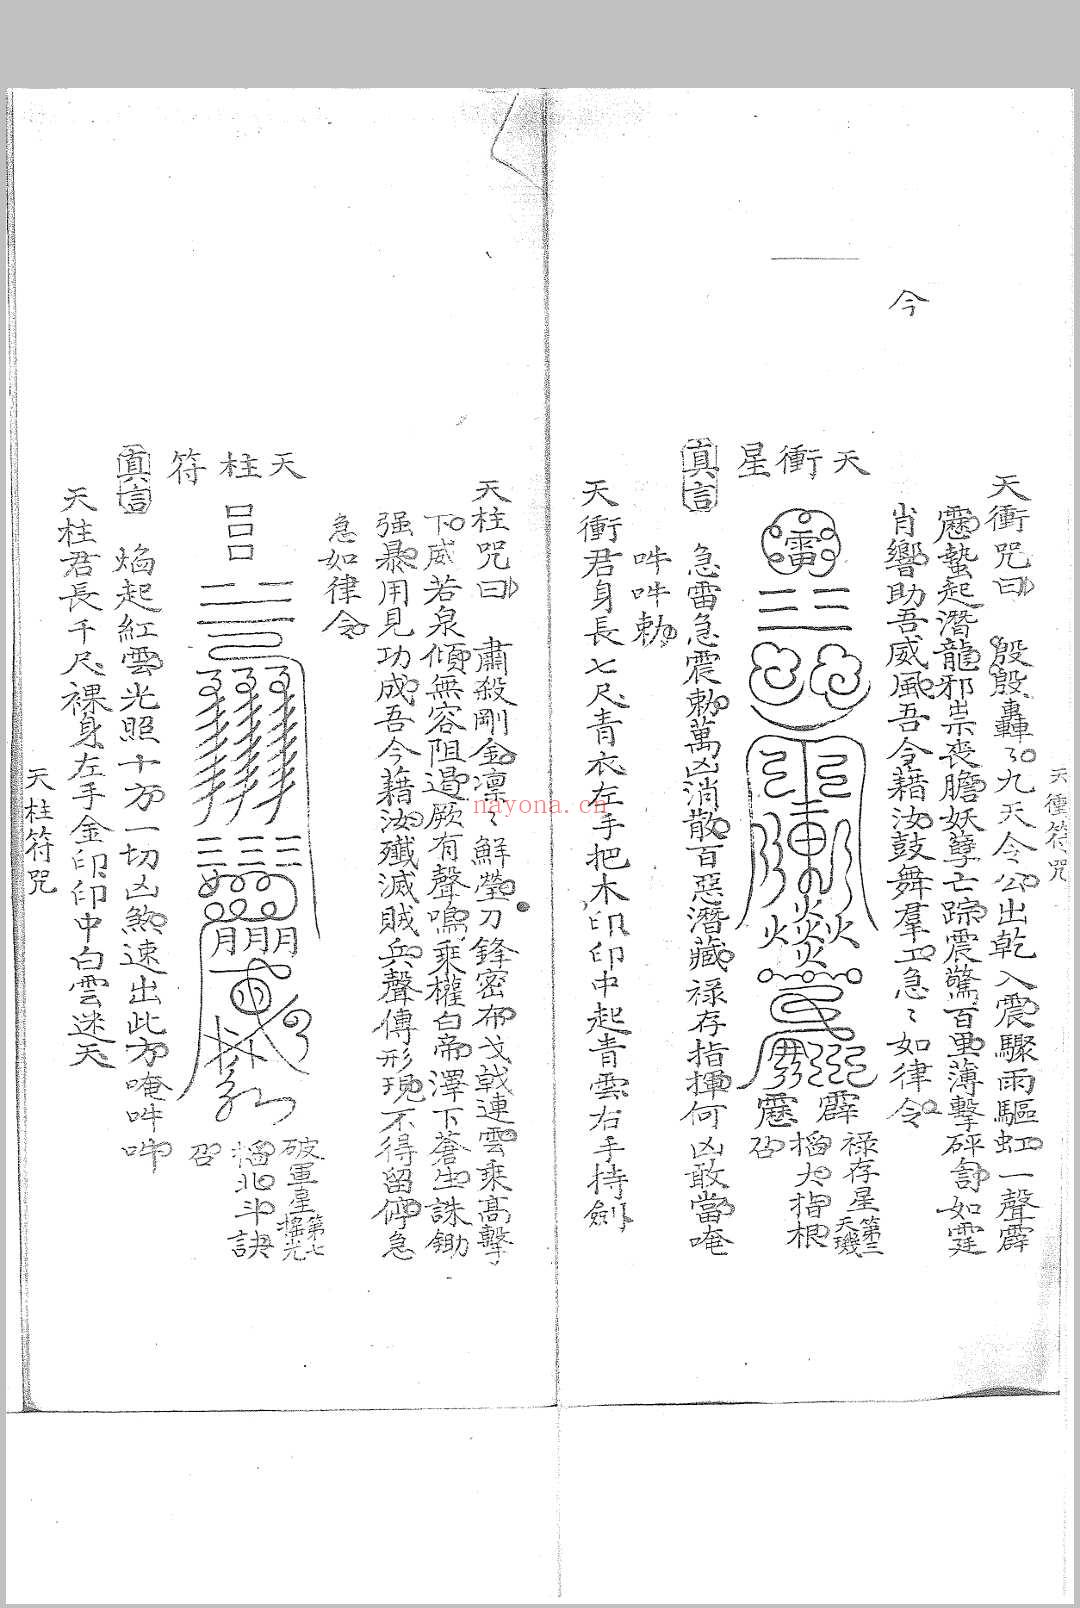 天衝符咒
天衝咒曰　殷殷轟〻九天令公出乾入震驟雨驅虹一聲霹
靂蟄起潛龍邪祟喪膽妖孽亡踪震驚百里薄擊砰訇如霆
肖響助吾威風吾令藉汝鼓舞羣工急〻如律令
今
天衝星
雷
霹靂
祿存星第三天璣
掐大指根
召
真言　急雷急震勅萬凶消散百惡潛藏祿存指揮何凶敢當唵
吽吽勅
天衝君身長七尺青衣左手把木印印中起青雲右手持劍
天柱咒曰　肅殺剛金凛〻鮮瑩刀鋒密布戈戟連雲乘高擊
下威若泉傾無容阻遏厥有聲鳴乘權白帝澤下蒼生誅鋤
强暴用見功成吾今藉汝殲滅賊兵聲傳形現不得留停急
急如律令
天柱符
月月月
破軍星第七搖光
掐北斗訣
召
真言　焰起紅雲光照十方一切凶煞速出此方唵吽吽
天柱君長千尺裸身左手金印印中白雲迷天
天柱符咒
nayona.cn